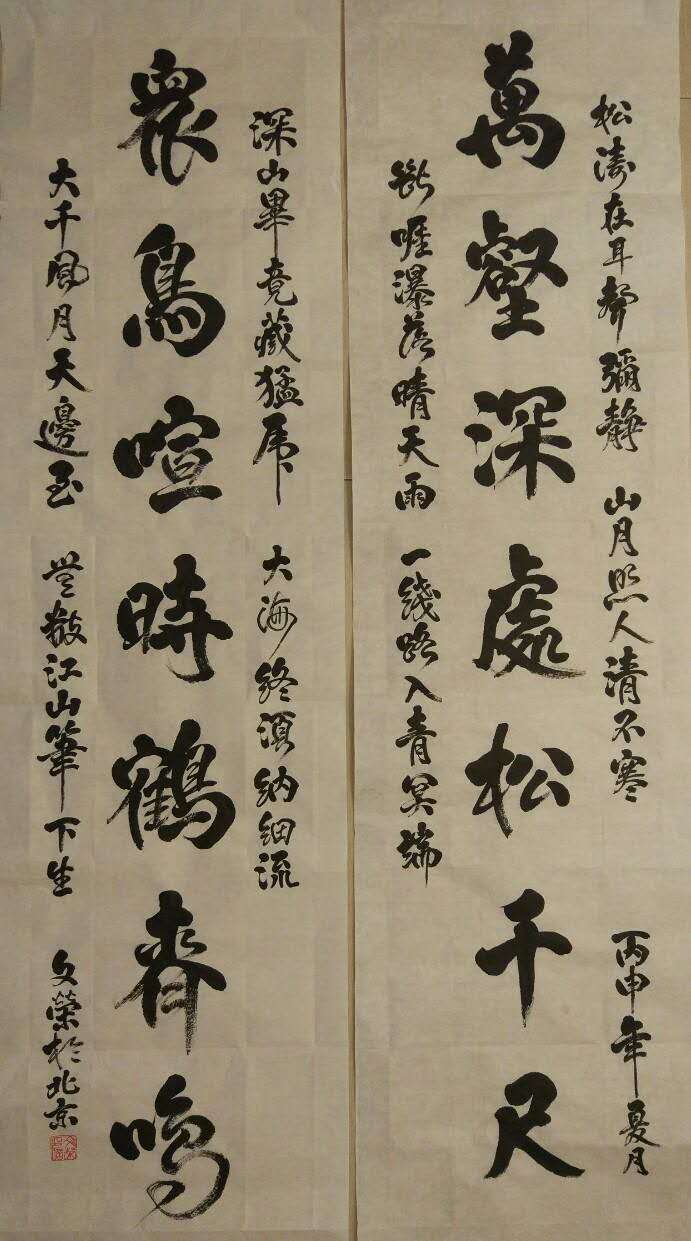 松濤在耳聲彌靜 山月照人清不寒 丙申年夏月
萬壑深處松千尺
斷啀瀑落晴天雨 一綫路入青冥端
深山畢竟藏猛虎 大海終須納細流
眾鳥喧時鶴齊鳴
大千風月天邊至 無數江山筆下生 文榮於北京